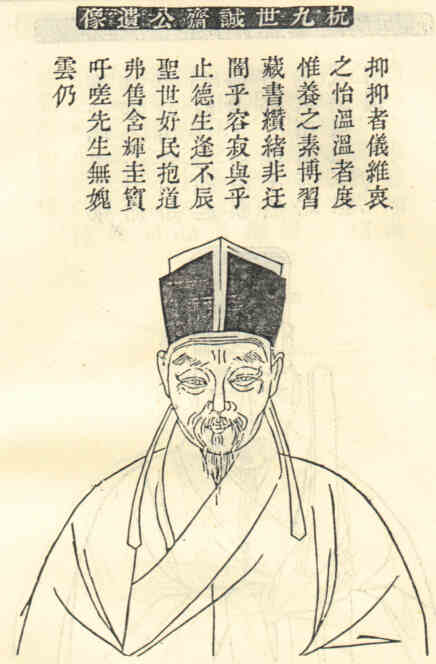 杭九世誠齋公遺像
抑抑者儀維衷
之怡溫溫者度
惟養之素博習
藏書纘緒非迂
乎容寂與乎
止德生逢不辰
聖世好民抱道
弗售含輝圭竇
吁嗟先生無媿
雲仍